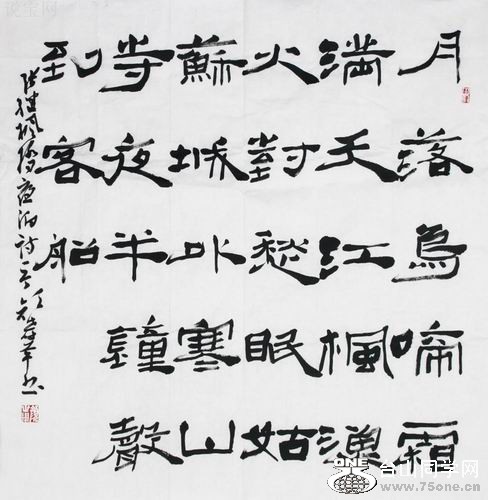 月落烏啼霜
滿天江楓漁
火對愁眠姑
蘇城外寒山
寺夜半鐘聲
到客船
張繼楓橋夜泊詩
说宝网
ONE
台山同学网
www.75one.cn